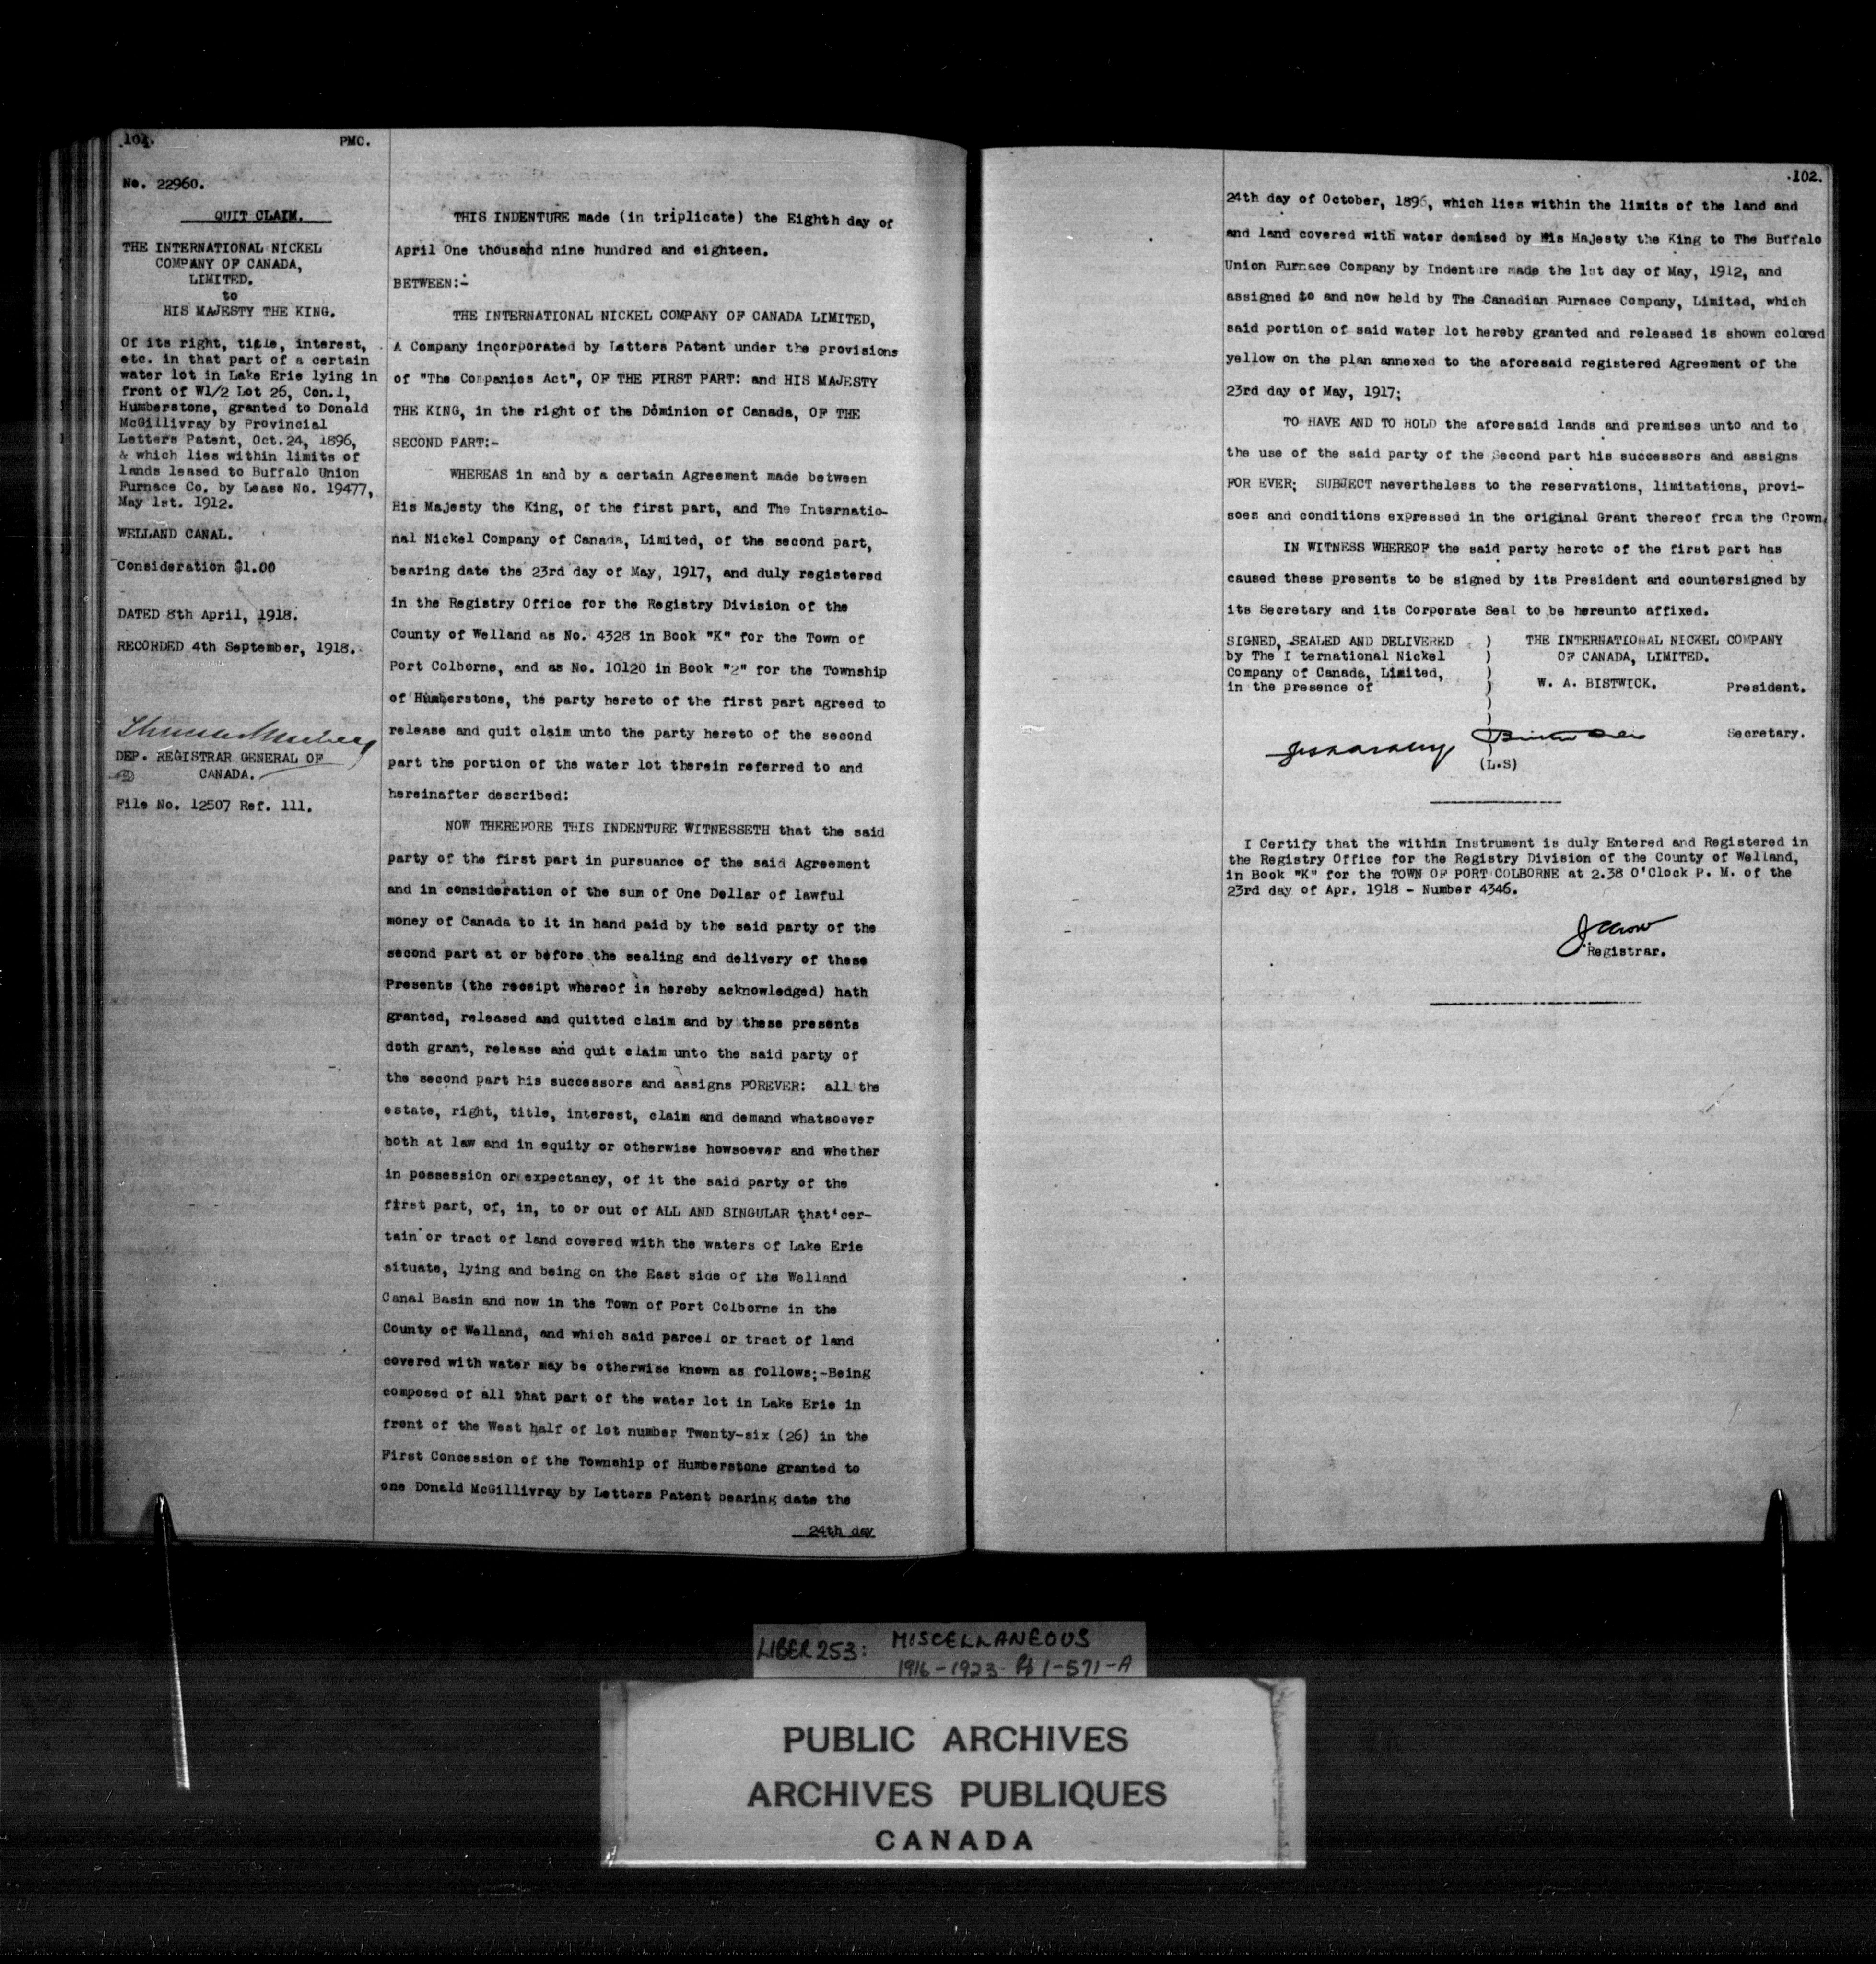 101. PMC.
No. 22960.
QUIT CLAIM.
THE INTERNATIONAL NICKEL
COMPANY OF CANADA,
LIMITED.
to
HIS MAJESTY THE KING.
Of its right, title, interest,
etc. in that part of a certain
water lot in Lake Erie lying in
front of W1/2 Lot 26, Con.1,
Humberstone, granted to Donald
McGillivray by Provincial
Letters Patent, Oct.24, 1896,
& which lies within limits of
lands leased to Buffalo Union
Furnace Co. by Lease No. 19477,
May 1st. 1912.
WELLAND CANAL.
Consideration $1.00
DATED 8th April, 1918.
RECORDED 4th September, 1918.
DEP. REGISTRAR GENERAL OF
CANADA.
File No. 12507 Ref. 111.
THIS INDENTURE made (in triplicate) the Eighth day of
April One thousand nine hundred and eighteen.
BETWEEN:-
THE INTERNATIONAL NICKEL COMPANY OF CANADA LIMITED,
A Company incorporated by Letters Patent under the provisions
of "The Companies Act", OF THE FIRST PART: and HIS MAJESTY
THE KING, in the right of the Dominion of Canada, OF THE
SECOND PART:-
WHEREAS in and by a certain Agreement made between
His Majesty the King, of the first part, and The Internatio-
nal Nickel Company of Canada, Limited, of the second part,
bearing date the 23rd day of May, 1917, and duly registered
in the Registry Office for the Registry Division of the
County of Welland as No. 4328 in Book "K" for the Town of
Port Colborne, and as No. 10120 in Book "2" for the Township
of Humberstone, the party hereto of the first part agreed to
release and quit claim unto the party hereto of the second
part the portion of the water lot therein referred to and
hereinafter described:
NOW THEREFORE THIS INDENTURE WITNESSETH that the said
party of the first part in pursuance of the said Agreement
and in consideration of the sum of One Dollar of lawful
money of Canada to it in hand paid by the said party of the
second part at or before the sealing and delivery of these
Presents (the receipt whereof is hereby acknowledged) hath
granted, released and quitted claim and by these presents
doth grant, release and quit claim unto the said party of
the second part his successors and assigns FOREVER: all the
estate, right, title, interest, claim and demand whatsoever
both at law and in equity or otherwise howsoever and whether
in possession or expectancy, of it the said party of the
first part, of, in, to or out of ALL AND SINGULAR that cer-
tain or tract of land covered with the waters of Lake Erie
situate, lying and being on the East side of the Welland
Canal Basin and now in the Town of Port Colborne in the
County of Welland, and which said parcel or tract of land
covered with water may be otherwise known as follows;-Being
composed of all that part of the water lot in Lake Erie in
front of the West half of lot number Twenty-six (26) in the
First Concession of the Township of Humberstone granted to
one Donald McGillivray by Letters Patent bearing date the
24th day
102.
24th day of October, 1896, which lies within the limits of the land and
and land covered with water demised by His Majesty the King to The Buffalo
Union Furnace Company by Indenture made the 1st day of May, 1912, and
assigned to and now held by The Canadian Furnace Company, Limited, which
said portion of said water lot hereby granted and released is shown colored
yellow on the plan annexed to the aforesaid registered Agreement of the
23rd day of May, 1917;
TO HAVE AND TO HOLD the aforesaid lands and premises unto and to
the use of the said party of the Second part his successors and assigns
FOR EVER; SUBJECT nevertheless to the reservations, limitations, provi-
soes and conditions expressed in the original Grant thereof from the Crown.
IN WITNESS WHEREOF the said party hereto of the first part has
caused these presents to be signed by its President and countersigned by
its Secretary and its Corporate Seal to be hereunto affixed.
SIGNED, SEALED AND DELIVERED ) THE INTERNATIONAL NICKEL COMPANY
by The I ternational Nickel ) OF CANADA, LIMITED.
Company of Canada, Limited, )
in the presence of ) W. A. BISTWICK. President.
)
)
Secretary.
(L.S)
I Certify that the within Instrument is duly Entered and Registered in
the Registry Office for the Registry Division of the County of Welland,
in Book "K" for the TOWN OF PORT COLBORNE at 2.38 O'Clock P. M. of the
23rd day of Apr. 1918 - Number 4346.
Registrar.
LIBER 253: MISCELLANEOUS
1916-1923- Pt 1-571-A
PUBLIC ARCHIVES
ARCHIVES PUBLIQUES
CANADA